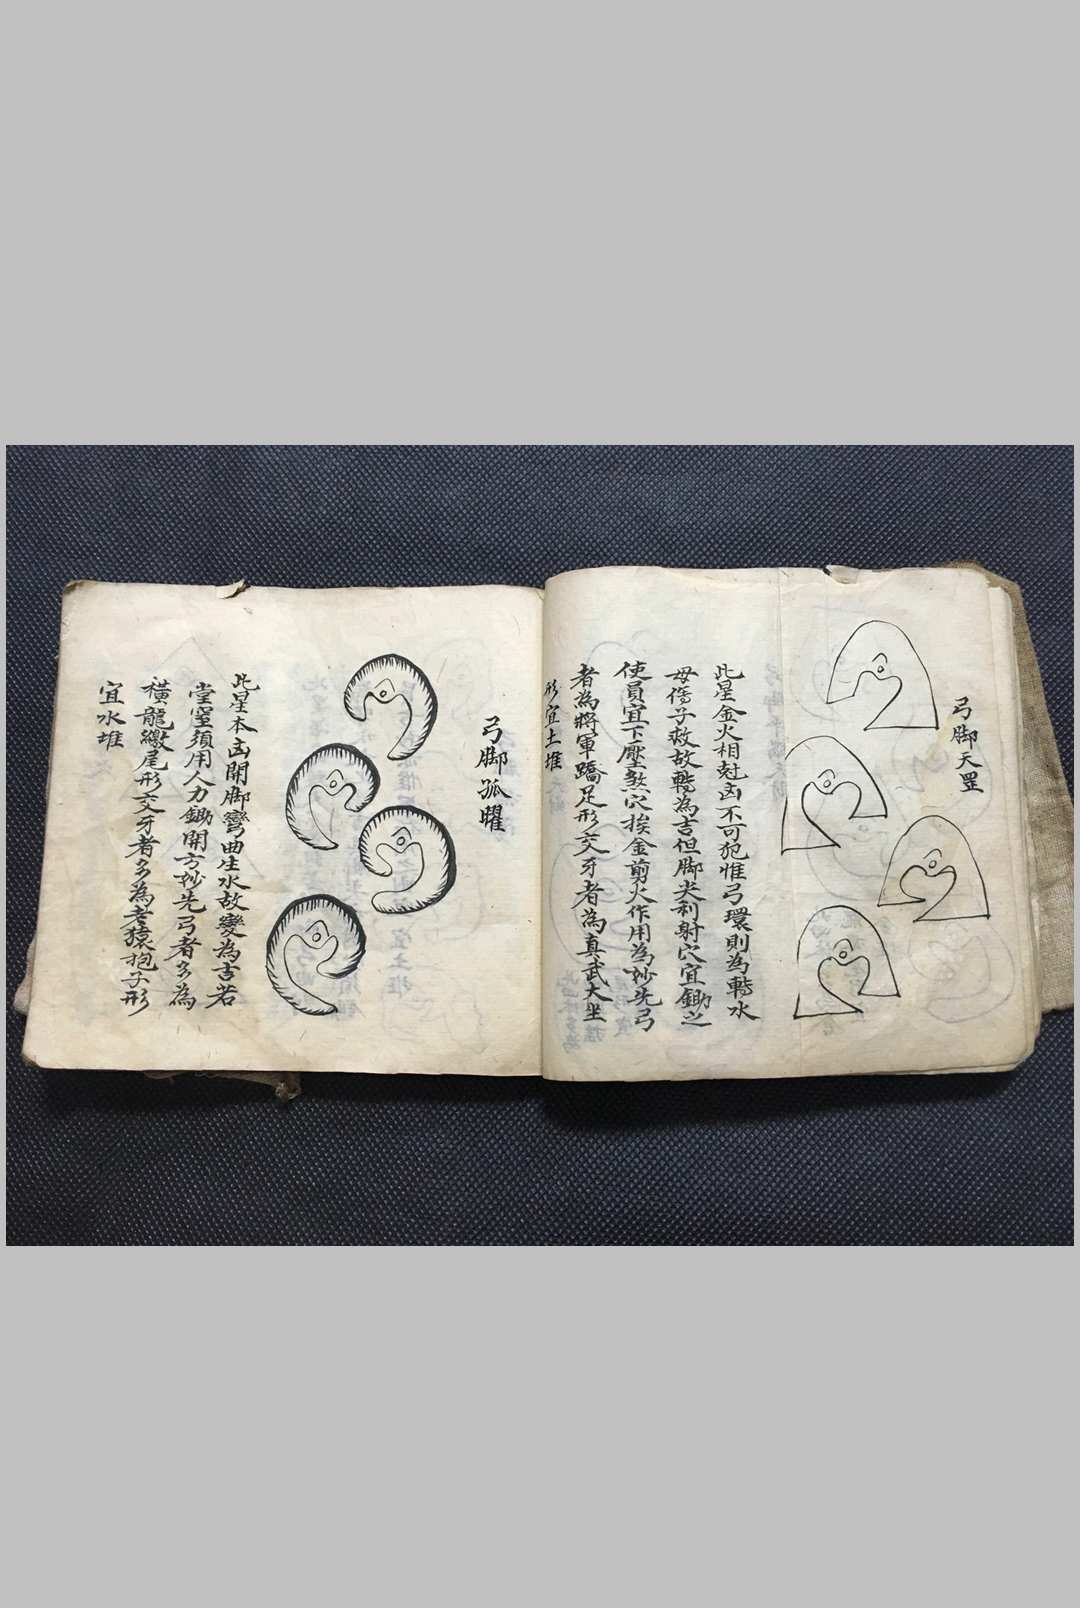 弓脚天罡
此星金火相尅凶不可犯惟弓環則為轉水
母儔子救故轉為吉但脚尖利射穴宜鋤之
使員宜下壓煞穴挨金剪火作用為妙先弓
者為將軍蹻足形交牙者為真武大坐
形宜土堆
弓脚孤曜
此星本凶開脚彎曲生水故變為吉若
堂窒須用人力鋤開方妙先弓者多為
橫龍繳尾形交牙者多為老猿抱子形
宜水堆